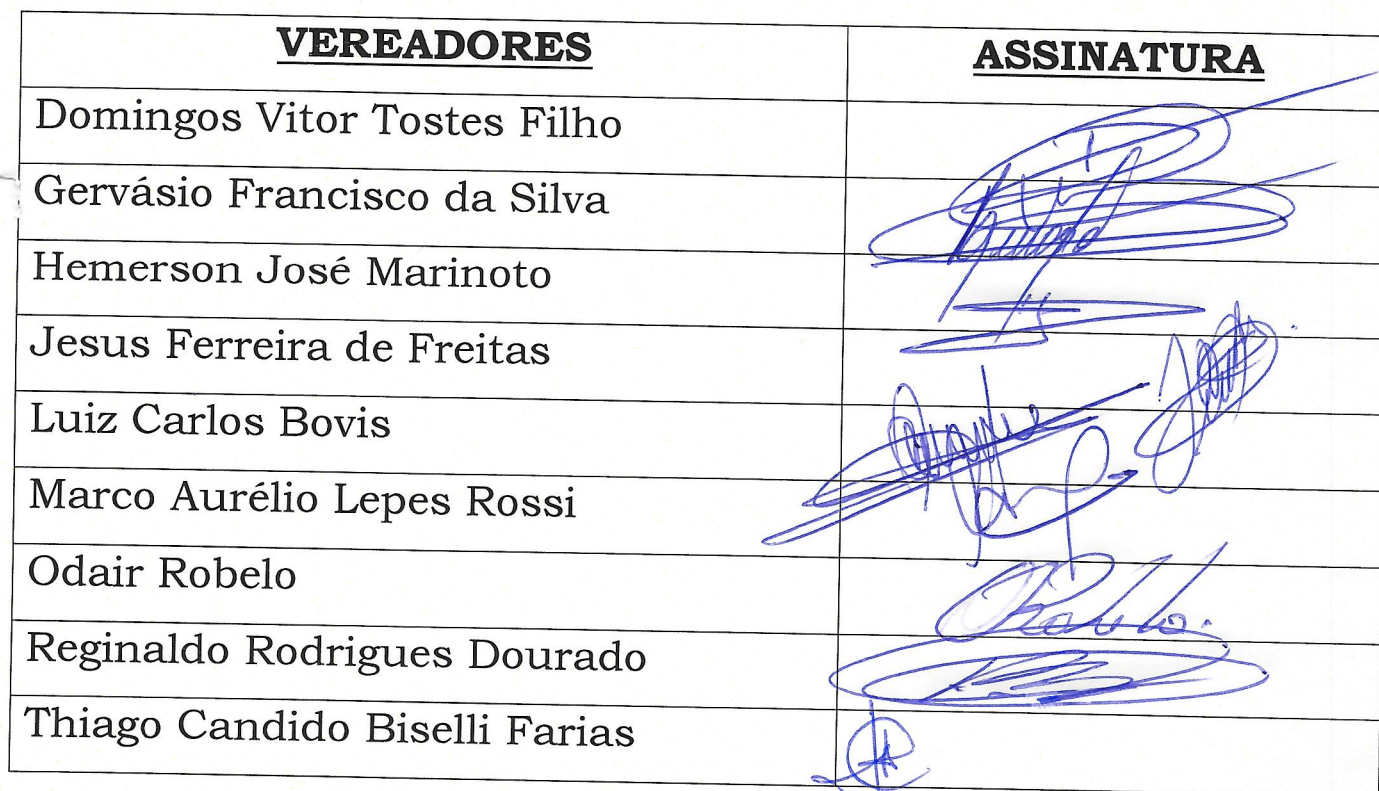 VEREADORES ASSINATURA
Domingos Vitor Tostes Filho
Gervásio Francisco da Silva
Hemerson José Marinoto
Jesus Ferreira de Freitas
Luiz Carlos Bovis
Marco Aurélio Lepes Rossi
Odair Robelo
Reginaldo Rodrigues Dourado
Thiago Candido Biselli Farias